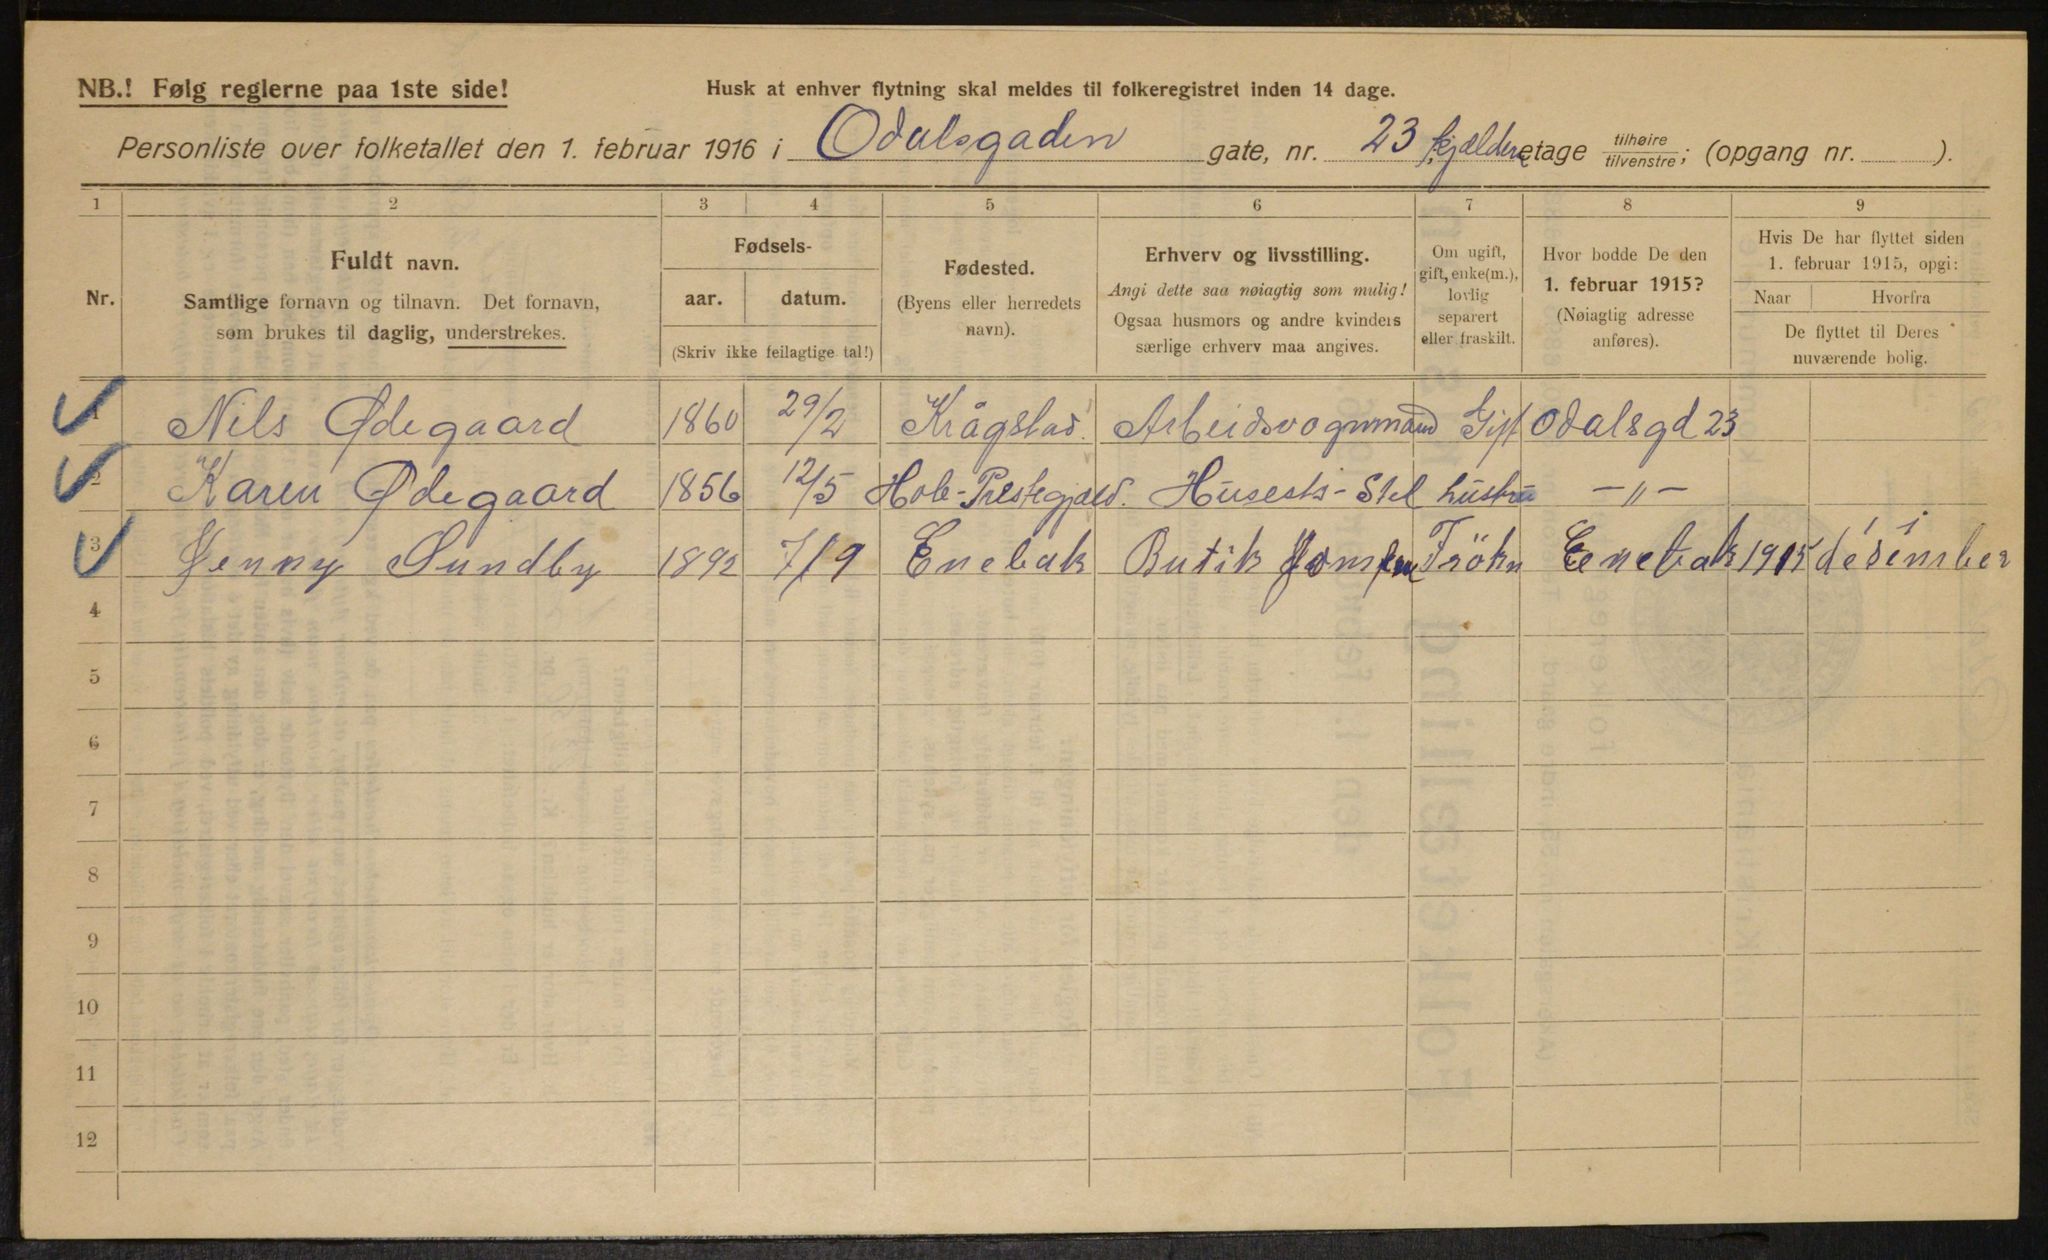 NB.! Følg reglerne paa 1ste side!
Husk at enhver flytning skal meldes til folkeregistret inden 14 dage.
Personliste over folketallet den 1. februar 1916 i Odalsgaden gate, nr. 23 kjælderetage tilhøire/tilvenstre; (opgang nr. ).
1 2 3 4 5 6 7 8 9
Nr.
Fuldt navn.
Samtlige fornavn og tilnavn. Det fornavn,
som brukes til daglig, understrekes.
Fødsels-
aar. datum.
(Skriv ikke feilagtige tal!)
Fødested.
(Byens eller herredets
navn).
Erhverv og livsstilling.
Angi dette saa nøiagtig som mulig!
Ogsaa husmors og andre kvinders
særlige erhverv maa angives.
Om ugift,
gift, enke(m.),
lovlig
separert
eller fraskilt.
Hvor bodde De den
1. februar 1915?
(Nøiagtig adresse
anføres).
Hvis De har flyttet siden
1. februar 1915, opgi:
Naar Hvorfra
De flyttet til Deres
nuværende bolig.
1 Nils Ødegaard 1860 29/2 Krågstad. Arbeidsvognmand Gift Odalsgd 23
2 Karen Ødegaard 1856 12/5 Hole-Prestegjæld. Husests-Stel hustru -"-
3 Jenny Sundby 1892 7/9 Enebak Butik Jomfru Frökn Enebak 1915 désimber
4
5
6
7
8
9
10
11
12